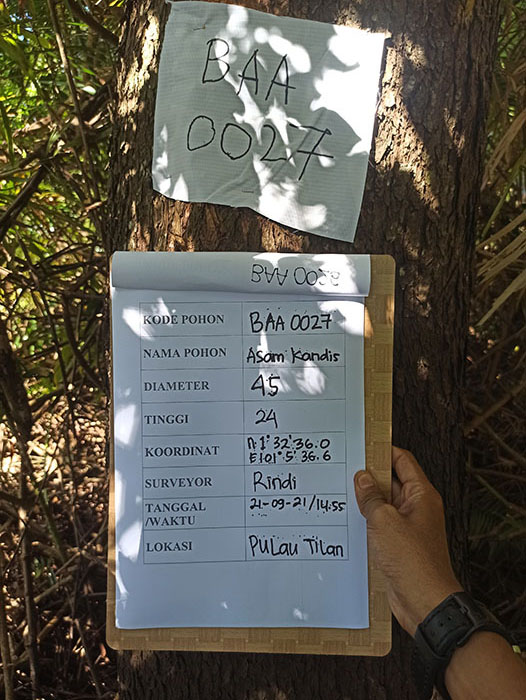 BAA
0027
BAA 0028
KODE POHON BAA 0027
NAMA POHON Asam Kandis
DIAMETER 45
TINGGI 24
KOORDINAT N: 1° 32' 36.0
E 101° 5' 36.6
SURVEYOR Rindi
TANGGAL 21-09-21/14:55
/WAKTU
LOKASI PULau Tilan